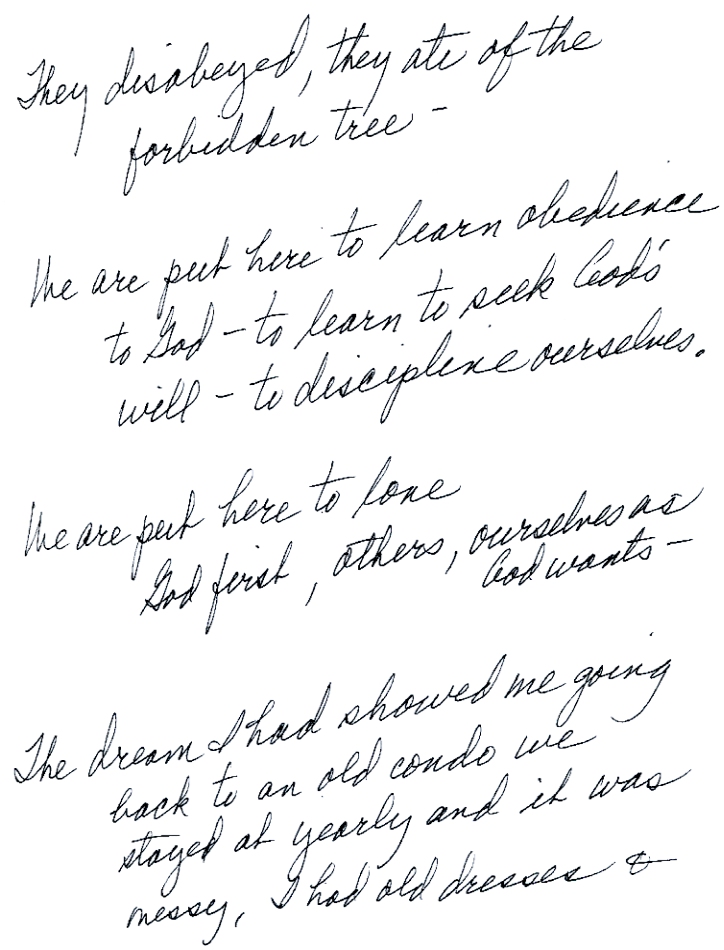 They disobeyed, they ate of the
forbidden tree -
We are put here to learn obedience
to God - to learn to seek God's
will - to discipline ourselves.
We are put here to love
God first, others, ourselves as
God wants -
The dream I had showed me going
back to an old condo we
stayed at yearly and it was
messy, I had old dresses &